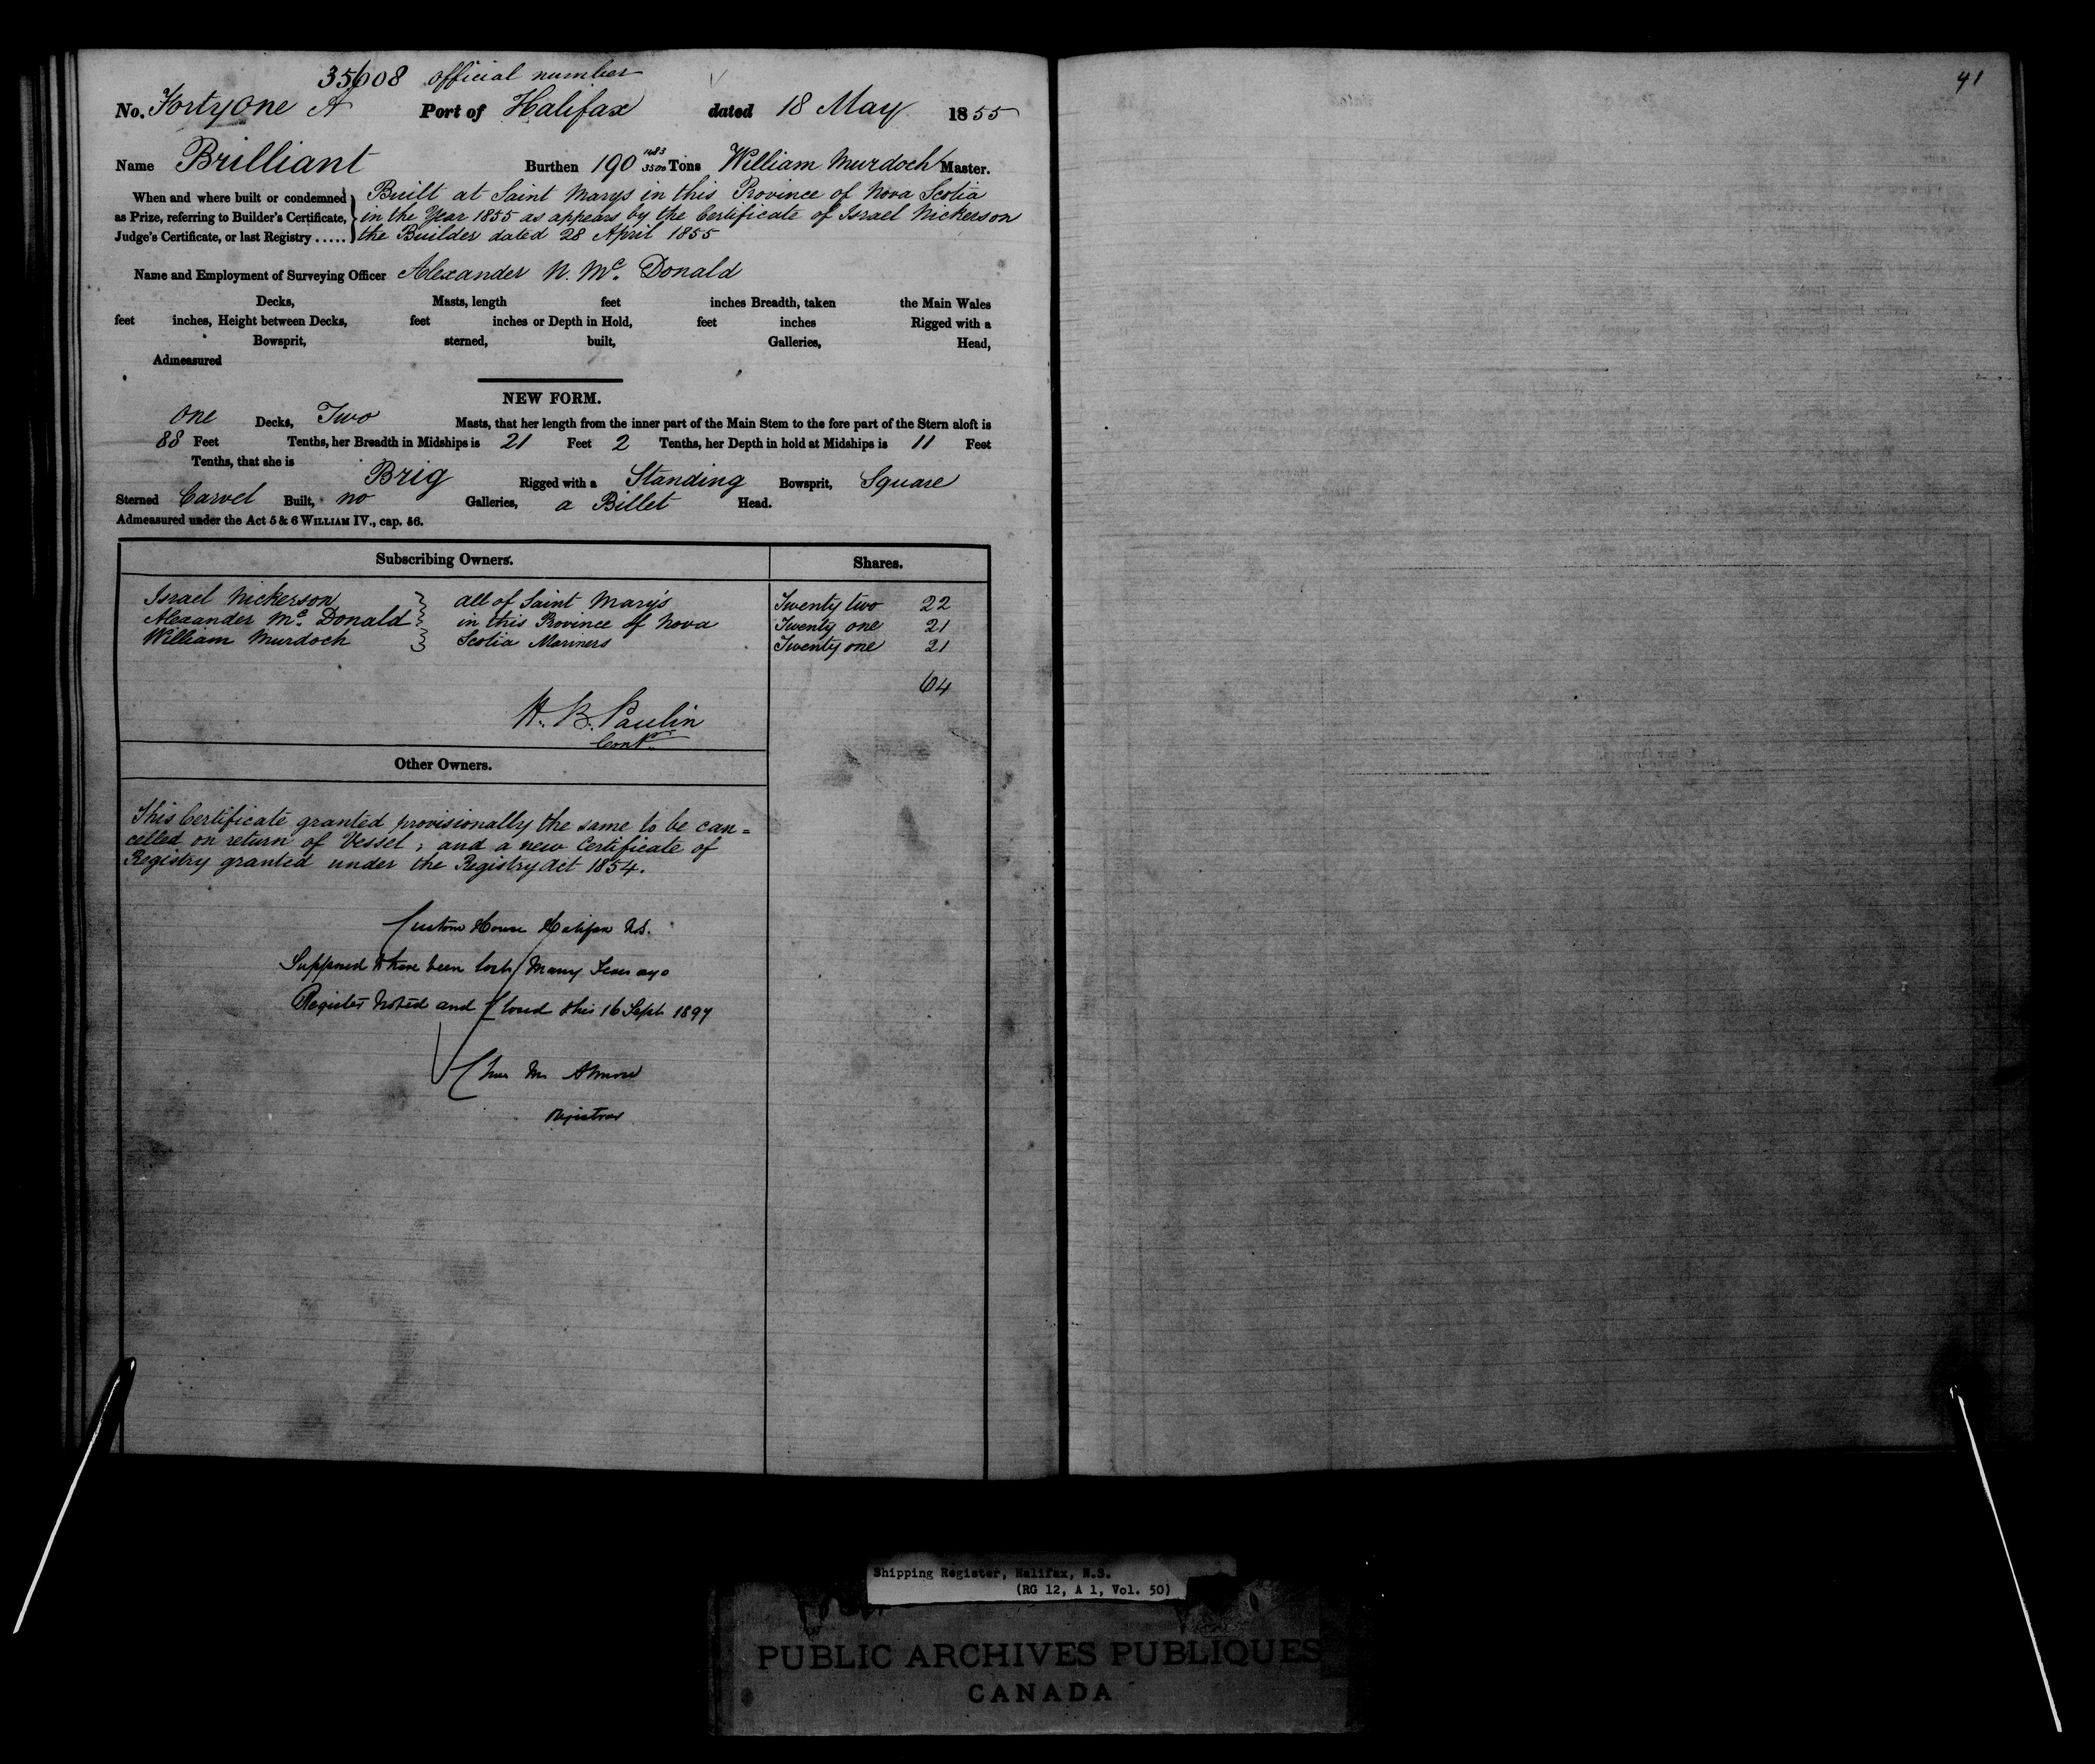 35608 official number
No. Forty One A Port of Halifax dated 18 May 1855
Name Brilliant Burthen 190 1483/3500 Tons William Murdoch Master.
When and where built or condemned as Prize, referring to Builder's Certificate, Judge's Certificate, or last Registry .....
Built at Saint Marys in this Province of Nova Scotia
in the Year 1855 as appears by the Certificate of Israel Nickerson
the Builder dated 28 April 1855
Name and Employment of Surveying Officer Alexander N. Mc. Donald
Decks, Masts, length feet inches Breadth, taken the Main Wales
feet inches, Height between Decks, feet inches or Depth in Hold, feet inches Rigged with a
Bowsprit, sterned, built, Galleries, Head,
Admeasured
NEW FORM.
One Decks, Two Masts, that her length from the inner part of the Main Stem to the fore part of the Stern aloft is
88 Feet Tenths, her Breadth in Midships is 21 Feet 2 Tenths, her Depth in hold at Midships is 11 Feet
Tenths, that she is Brig Rigged with a Standing Bowsprit, Square
Sterned Carvel Built, no Galleries, a Billet Head.
Admeasured under the Act 5 & 6 WILLIAM IV., cap. 56.
Subscribing Owners. Shares.
Israel Nickerson } all of Saint Mary's Twenty two 22
Alexander Mc. Donald } in this Province of Nova Twenty one 21
William Murdoch } Scotia Mariners Twenty one 21
64
H. B. Paulin
Contr.
Other Owners.
This Certificate granted provisionally the same to be can=
celled on return of Vessel; and a new Certificate of
Registry granted under the Registry Act 1854.
Custom House Halifax N.S.
Supposed to have been lost many Years ago
Register Noted and Closed this 16 Sept 1897
Chas M Almon
Registrar
41
Shipping Register, Halifax, N.S.
(RG 12, A 1, Vol. 50)
PUBLIC ARCHIVES PUBLIQUES
CANADA